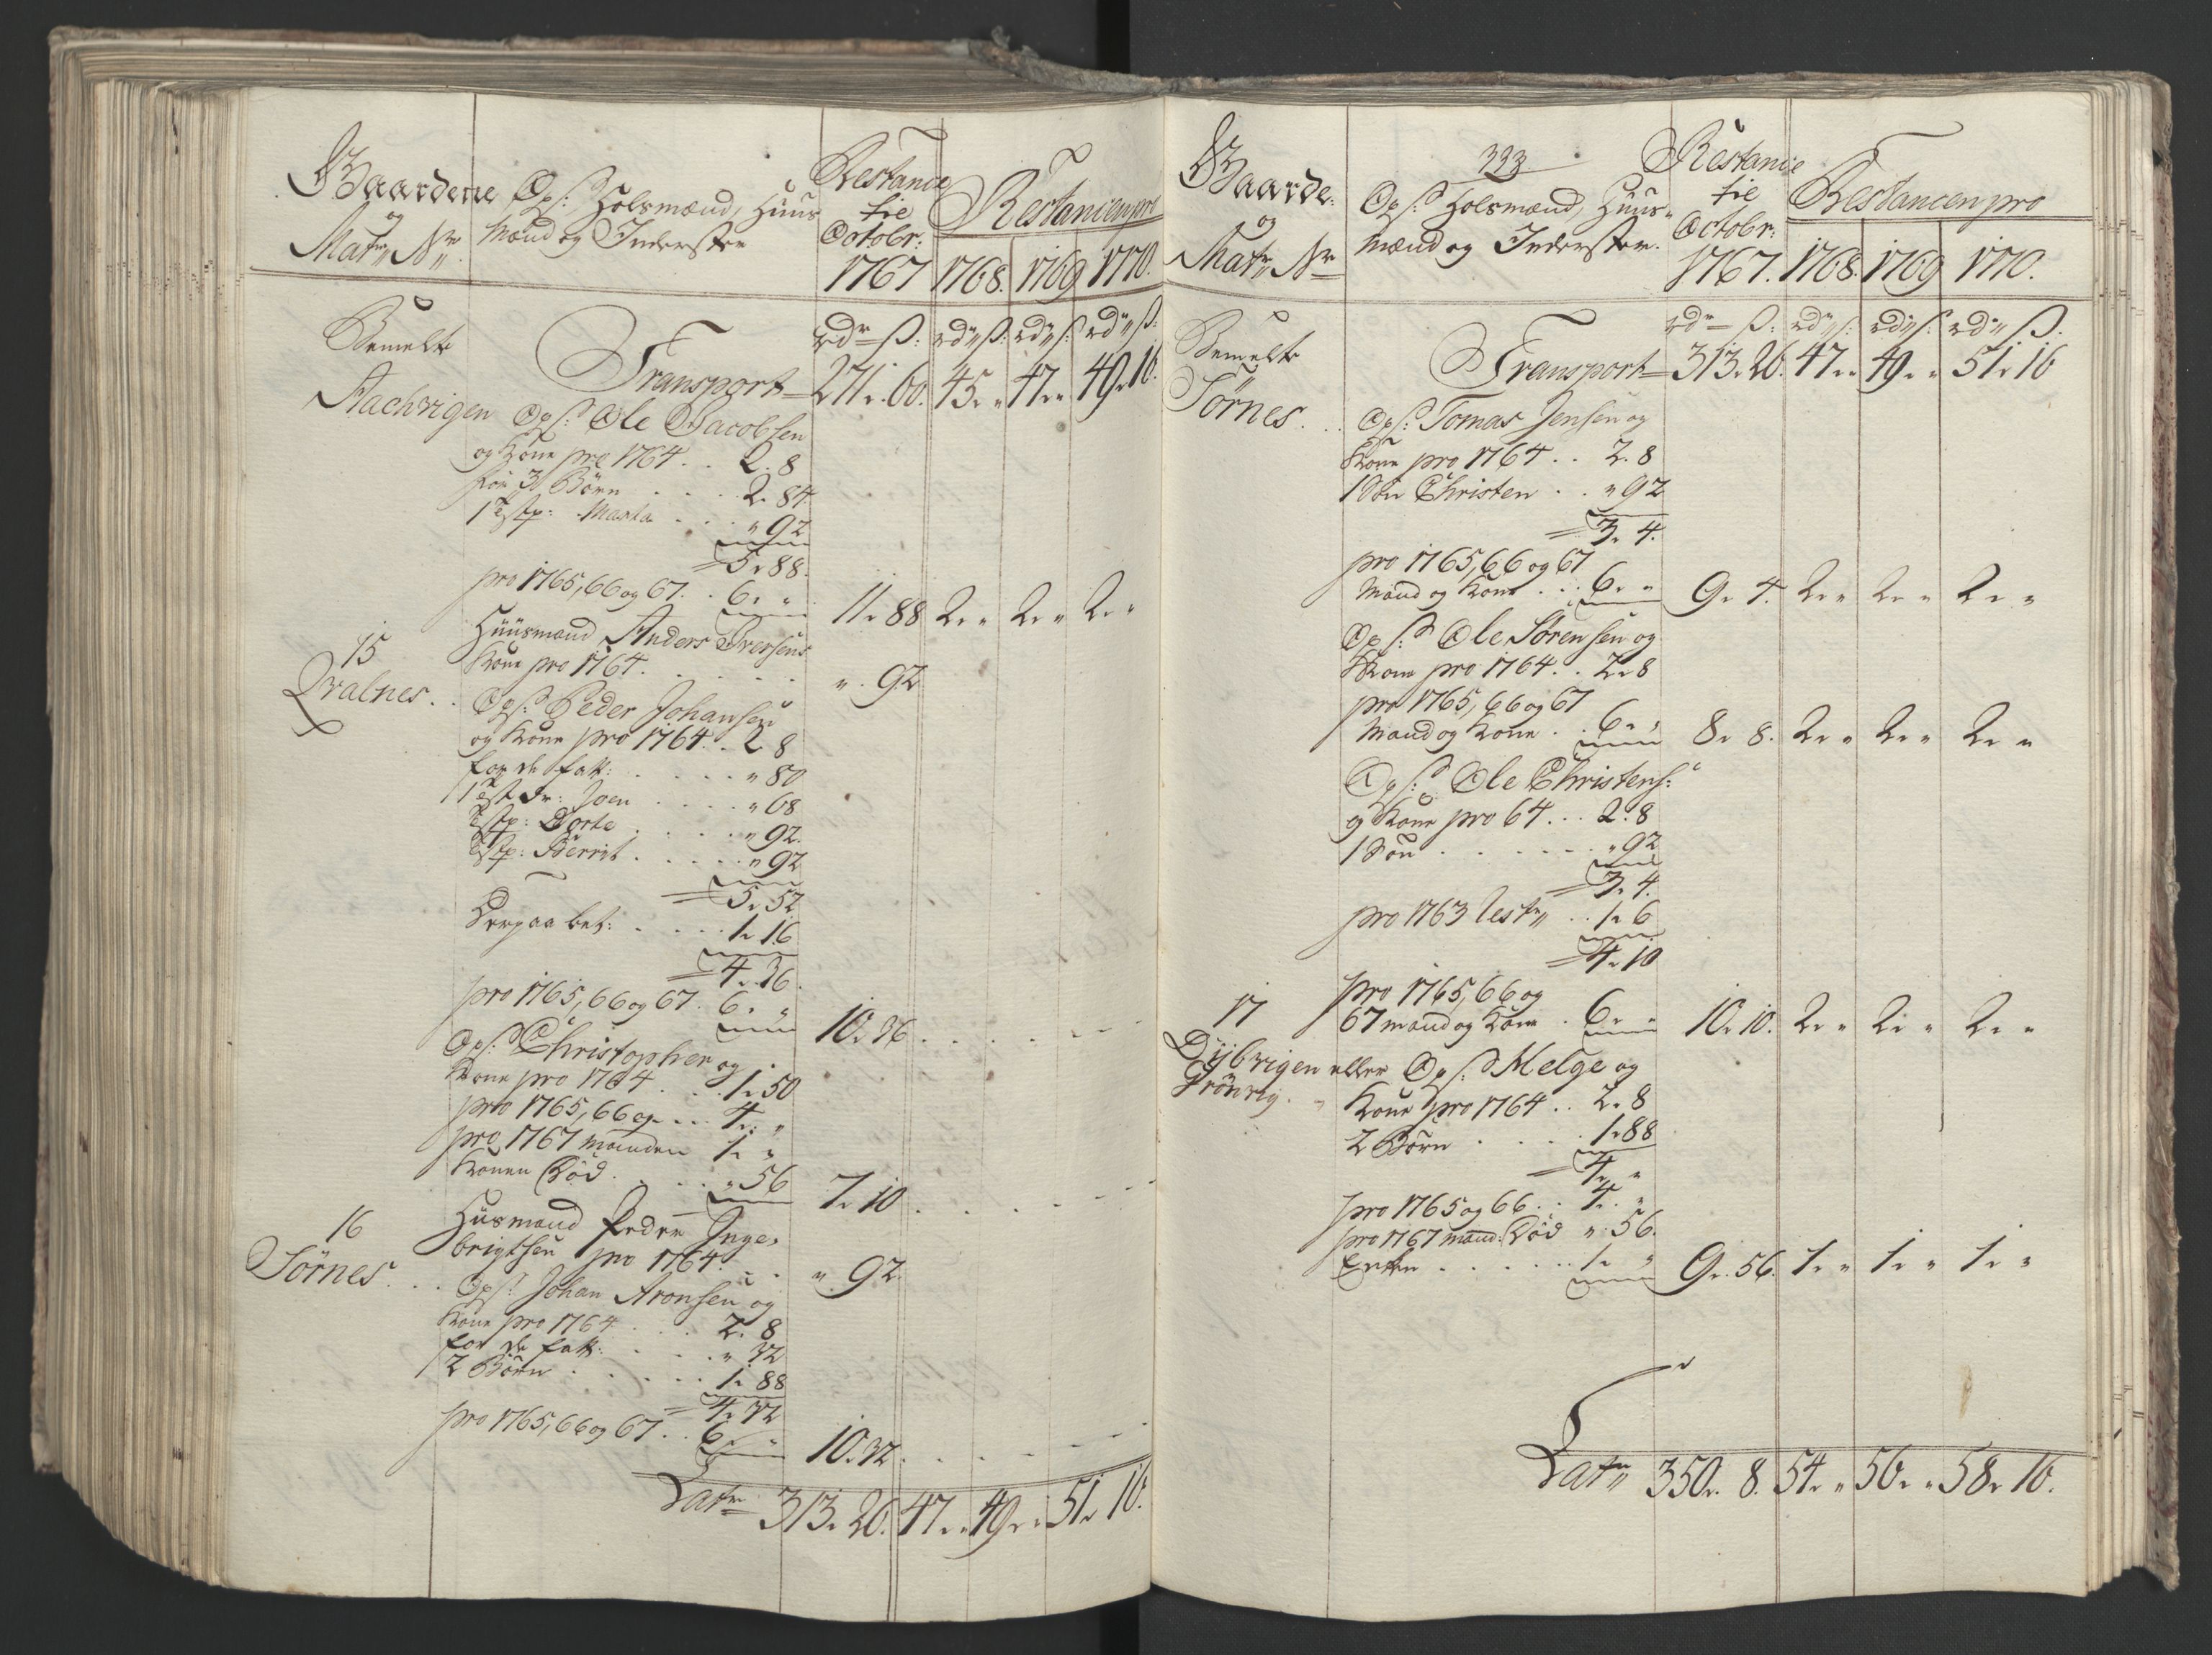 Gaardene
og
Matr. Nr.
Ops: Holsmænd, Huus
Mænd og Inderster
Restance
til
Octobr:
1767
Restancen pro
1768. 1769 1770.
rdr ß: rd ß: rd ß: rd ß:
Bemelte
Transport 271. 60. 45. " 47. " 49. 16.
Opß: Ole Jacobsen
og Kone pro 1764 . . 2. 8
for 3 Börn . . . . 2. 84.
Marta . . . " 92
5. 88.
pro 1765, 66 og 67. . 6. " 11. 88 2. " 2. " 2. "
Huusmand Anders Iversens
Kone pro 1764. . . . . . ". 92
15
Qvalnes. .
Opß: Peder Johansen
og Kone pro 1764. . 2 8
for de fatt: . . . . " 80
Joen . . . . " 68
Dorte . . . . " 92.
Berrit . . . . " 92
5. 52
Derpaa bet: . . . . 1. 16
4. 36.
pro 1765, 66 og 67. 6. " 10. 36 . . . . .
Opß: Christopher og
Kone pro 1764 . . 1. 50
pro 1765, 66 og . . . 4. "
pro 1767 manden 1. "
Konen Död . . . . " 56 7. 10 . . . . .
16
Sörnes. . .
Husmand Peder Inge-
brigtsen pro 1764 . . . ". 92.
Opß: Johan Aronsen og
Kone pro 1764 . . . 2. 8
for de fatt: . . . . " 32
2 Börn . . . . . 1. 88
4. 32
pro 1765, 66 og 67 . . 6. " 10. 32 . . . . .
Latr 313. 26. 47. " 49. " 51. 16.
323
Gaarde:
og
Matr Nr
Opß: Holsmænd, Huus-
mænd og Inderster.
Restance
til
Octobr:
1767.
Restancen pro
1768. 1769 1770.
rdr ß: rd ß: rd ß: rd ß.
Bemelte
Sörnes. . .
Transport 313. 26. 47. " 49. " 51. 16
Opß: Tomas Jensen og
Kone pro 1764 . . 2. 8
1 Sön Christen . . " 92
3. 4.
pro 1765, 66 og 67
Mand og Kone . . . 6. " 9. 4. 2. " 2. " 2. "
Opß: Ole Sörensen og
Kone pro 1764 . . 2. 8
pro 1765, 66 og 67
Mand og Kone . . 6. " 8. 8. 2. " 2. " 2. "
Opß: Ole Christens:
og Kone pro 64 . . . 2. 8
1 Sön . . . . . . " 92
3. 4.
pro 1763 . . 1. 6
4. 10
pro 1765, 66 og
67 mand og Kone . 6. " 10. 10. 2. " 2. " 2. "
17
Dybvigen eller
Grönvig.
Opß: Helge og
Kone pro 1764 . . 2. 8
2 Börn . . . . 1. 88
4. "
pro 1765 og 66 . . 4. "
pro 1767 mand: Död " 56.
Enken . . . . . 1. " 9. 56. 1. " 1. " 1. "
Latr 350. 8. 54. " 56. " 58. 16.